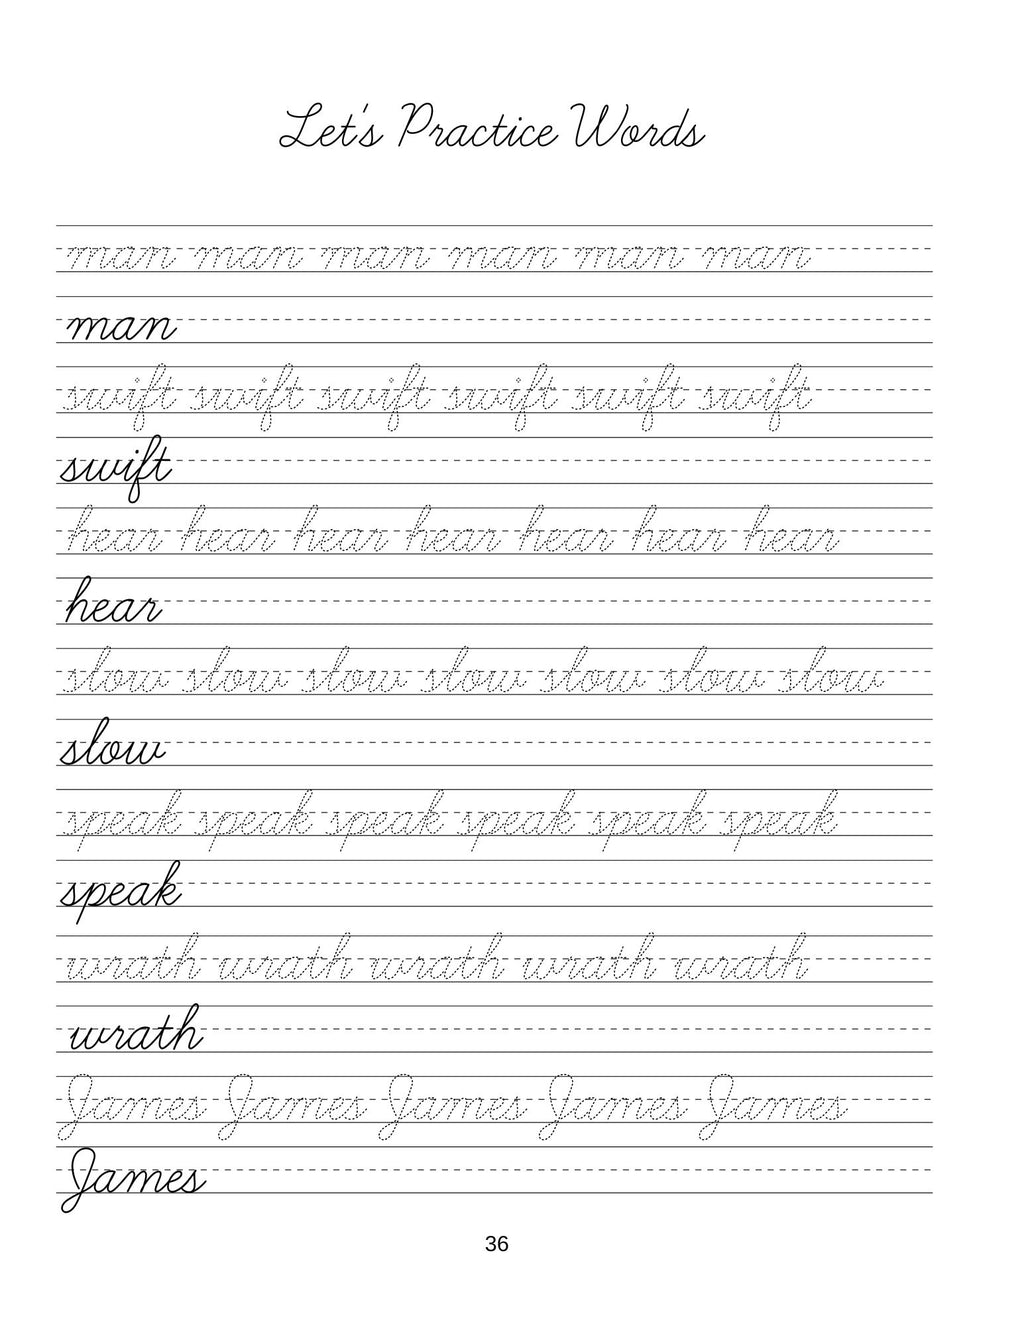 Let's Practice Words
man man man man man man
man
swift swift swift swift swift swift
swift
hear hear hear hear hear hear hear
hear
slow slow slow slow slow slow slow
slow
speak speak speak speak speak speak
speak
wrath wrath wrath wrath wrath
wrath
James James James James James
James
36